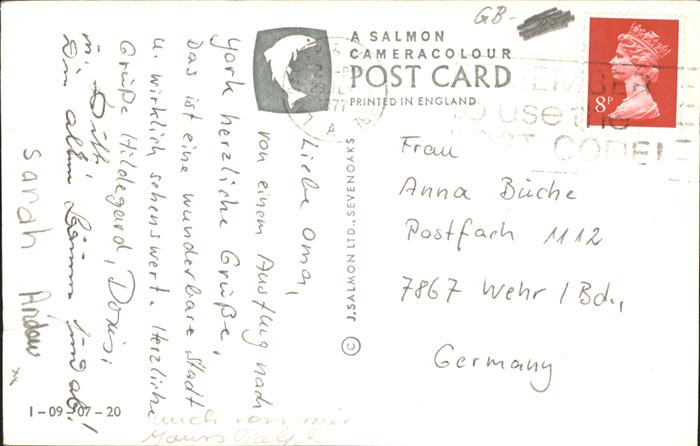 GB-
A SALMON
CAMERACOLOUR
POST CARD
PRINTED IN ENGLAND
8P
REMEMBER
to use the
POST CODE
J. SALMON LTD., SEVENOAKS ©
Liebe Oma,
von einem Ausflug nach
York herzliche Grüße.
Das ist eine wunderbare Stadt
u. wirklich sehenswert. Herzliche
Grüße Hildegard, Doris,
Sarah Andrew
auch von mir
Frau
Anna Büche
Postfach 1112
7867 Wehr / Bd.,
Germany
1-09-07-20